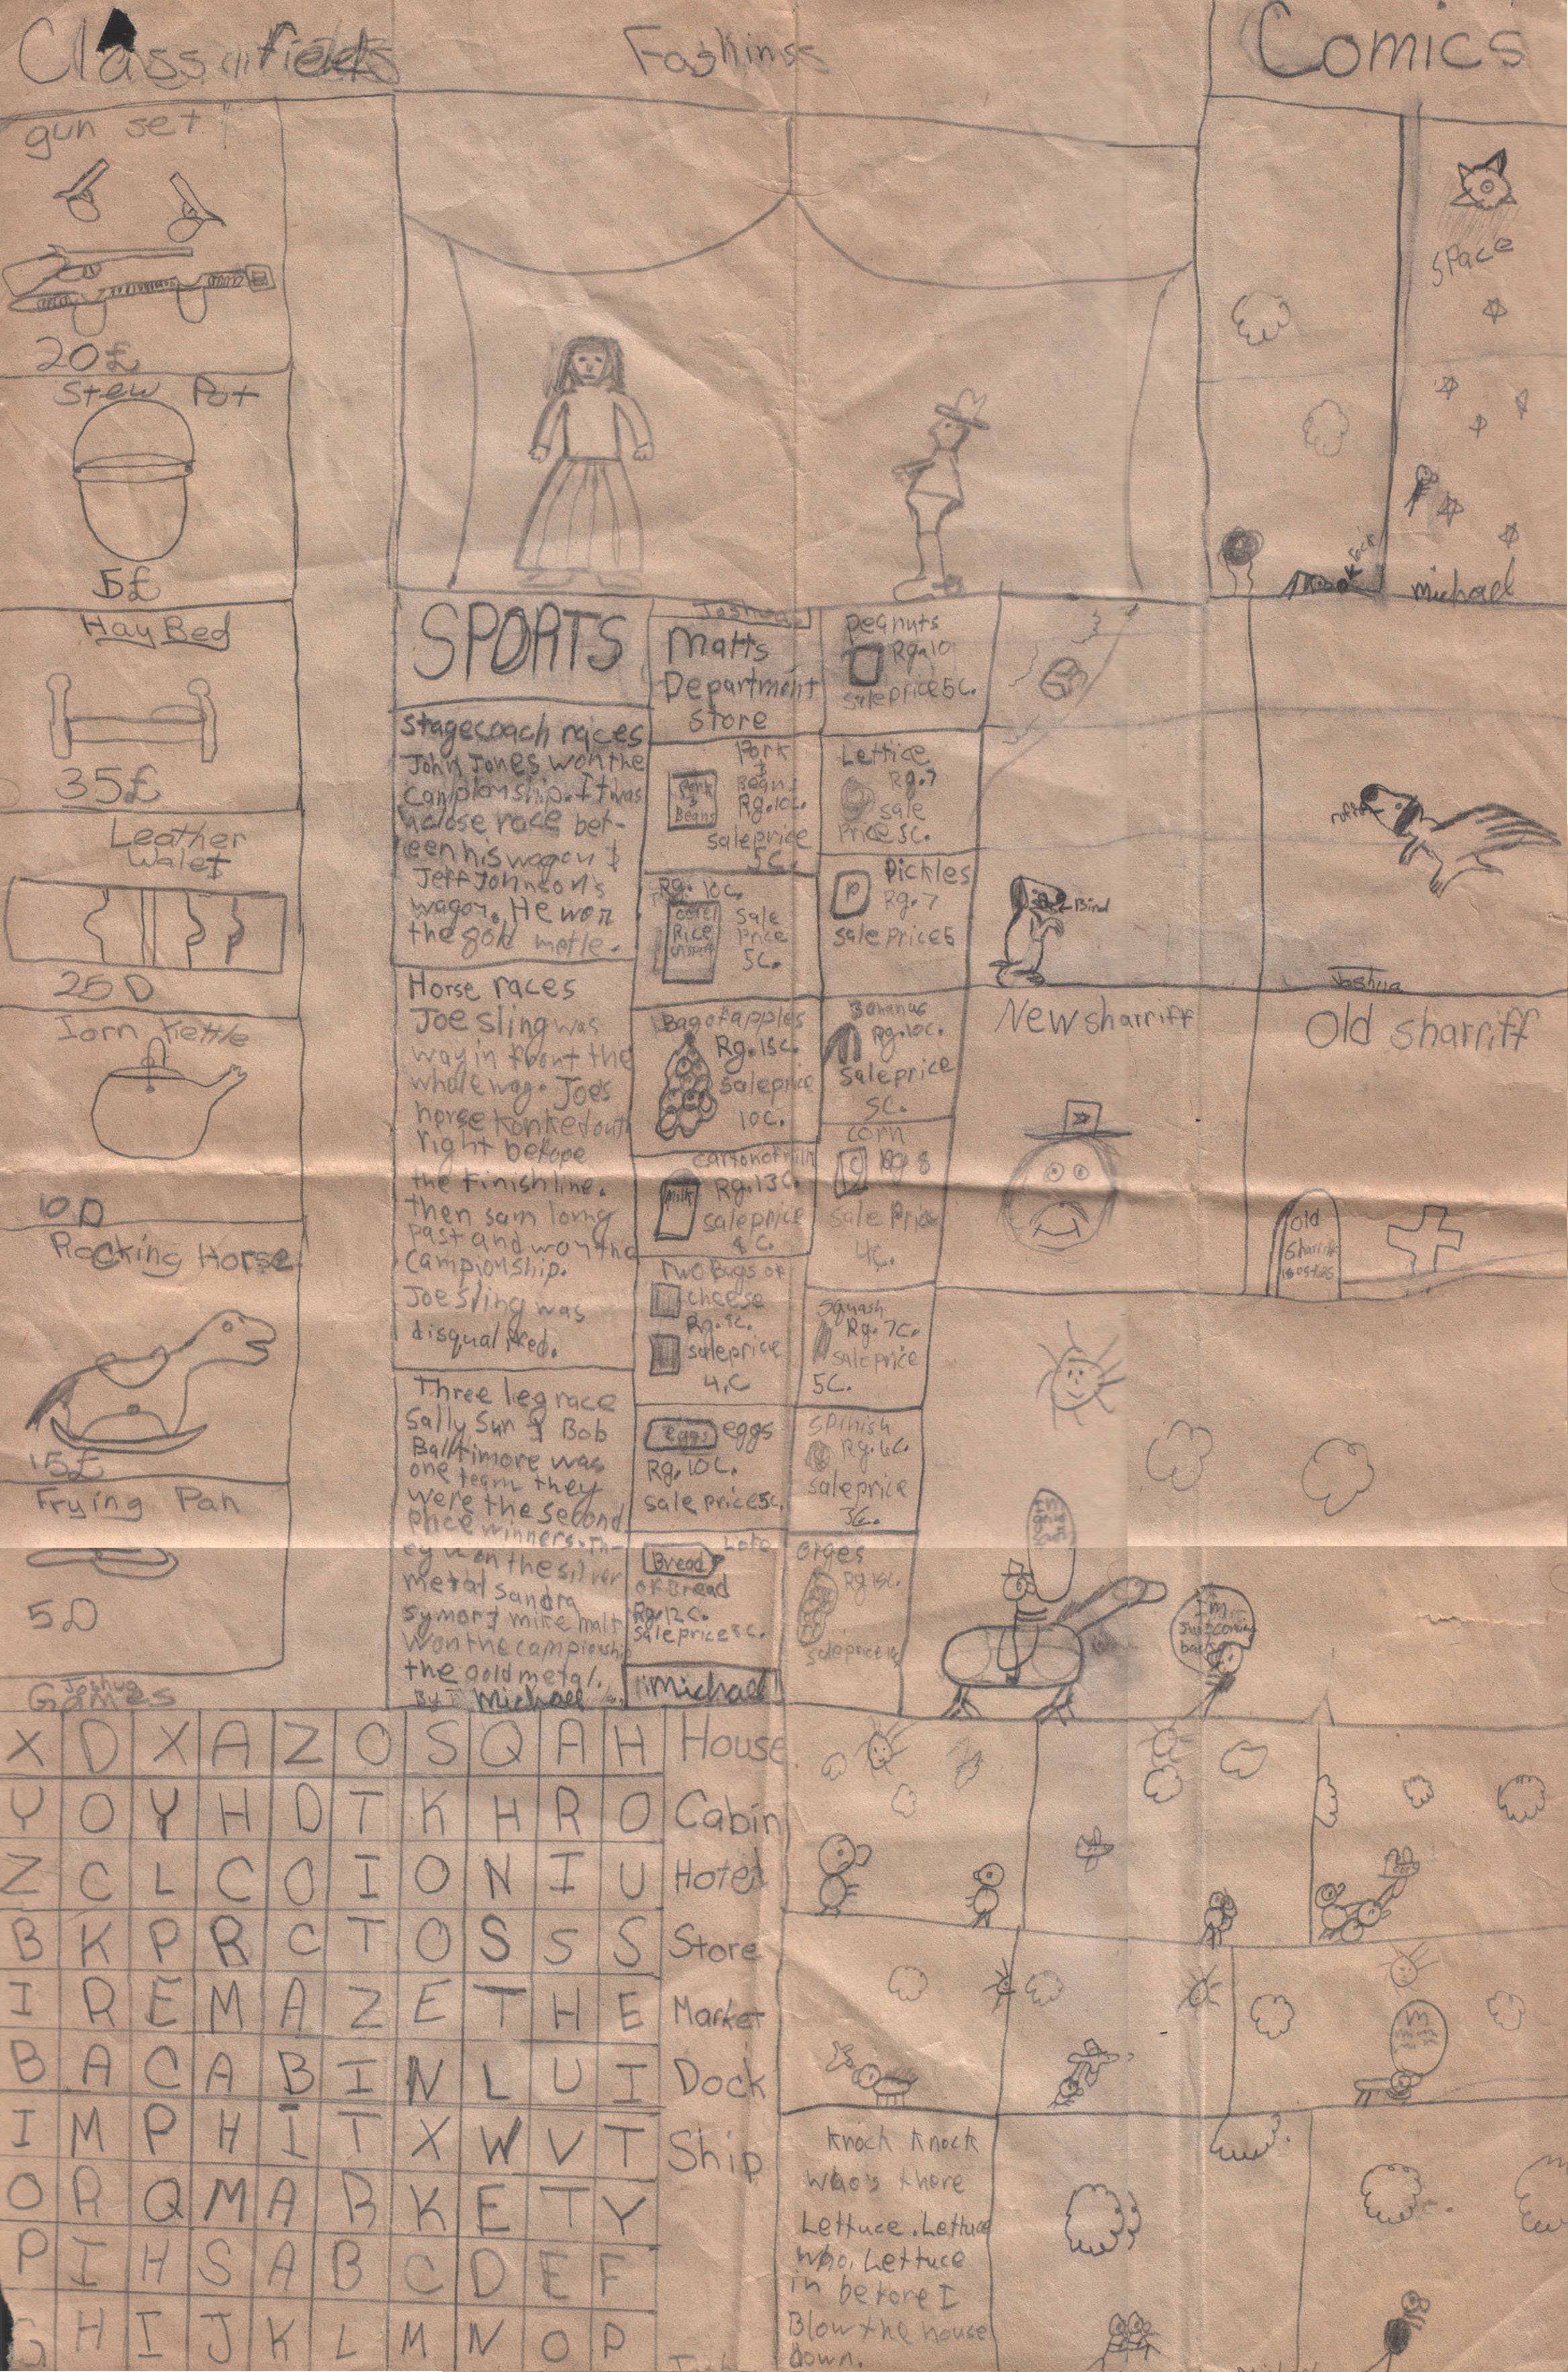 Classifields
gun set
20£
Stew Pot
5£
Hay Bed
35£
Leather
Walet
25D
Iorn Kettle
10D
Rocking Horse
15£
Frying Pan
5D
Joshua
Fashinss
SPORTS
Stagecoach races
John Jones won the
campionship. It was
a close race bet-
een his wagon &
Jeff Johnson's
wagon. He won
the gold metle.
Horse races
Joe sling was
way in front the
whole way. Joes
horse konked out
right before
the finish line.
then sam long
past and won the
campionship.
Joe sling was
disqualifed.
Three leg race
Sally Sun & Bob
Balltimore was
one team they
were the second
price winners. Th-
ey won the silver
metal sandra
symor & mike malt
won the campionship
the gold metal.
By Michael
Joshua
Matts
Department
Store
Pork
&
Beans
Pork
&
Beans
Rg. 10c.
sale price
5c.
Rg. 10c.
Rice
Sale
Price
5c.
Bag of apples
Rg. 15c.
sale price
10c.
carton of milk
Milk
Rg. 13c.
sale price
8c.
Two Bags of
cheese
Rg. 8c.
sale price
4c
eggs eggs
Rg. 10c.
sale price 5c.
Lofe
Bread
of Bread
Rg. 12c.
sale price 8c.
Michael
peanuts
Rg. 10
sale price 5c.
Lettice
Rg. 7
sale
Price 5c.
Pickles
P
Rg. 7
sale price 5
Bananas
Rg. 10c.
sale price
5c.
corn
C
Rg 8
sale Price
4c.
Squash
Rg. 7c.
sale price
5c.
Spinish
Rg. 6c.
sale price
3c.
orges
Rg 15c.
sale price
Comics
space
michael
Bind
ruff
Joshua
New sharriff
Old sharriff
old
Sharriff
I'm
Just coming
back
Games
X D X A Z O S Q A H
Y O Y H D T K H R O
Z C L C O I O N I U
B K P R C T O S S S
I R E M A Z E T H E
B A C A B I N L U I
I M P H I T X W V T
O R Q M A R K E T Y
P I H S A B C D E F
G H I J K L M N O P
House
Cabin
Hotel
Store
Market
Dock
Ship
Knock Knock
Who's there
Lettuce. Lettuce
who, Lettuce
in before I
Blow the house
down.